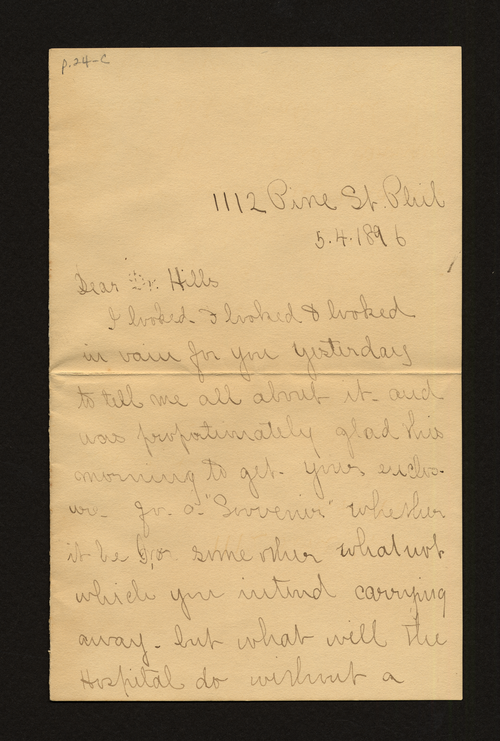 p. 24-C
1112 Pine St. Phil
5.4.1896
Dear Dr. Hills
I looked & looked & looked
in vain for you yesterday
to tell me all about it - and
was proportionately glad this
morning to get your enclo-
ure - for a "Souvenir" whether
it be or some other whatnot
which you intend carrying
away - but what will the
Hospital do without a